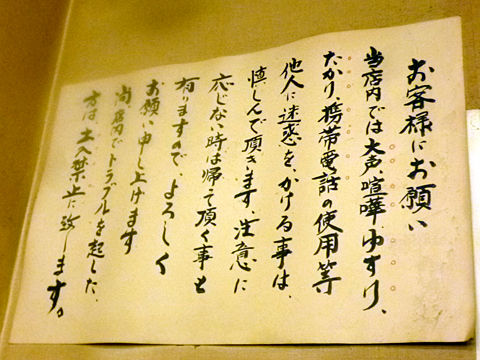 お客様にお願い
当店内では大声、喧嘩、ゆすり、
たかり、携帯電話の使用等
他人に迷惑を、かける事は、
慎しんで頂きます、注意に
応じない時は帰って頂く事も
有りますので、よろしく
お願い申し上げます
尚、店内でトラブルを起した、
方は、立入禁止に致します。